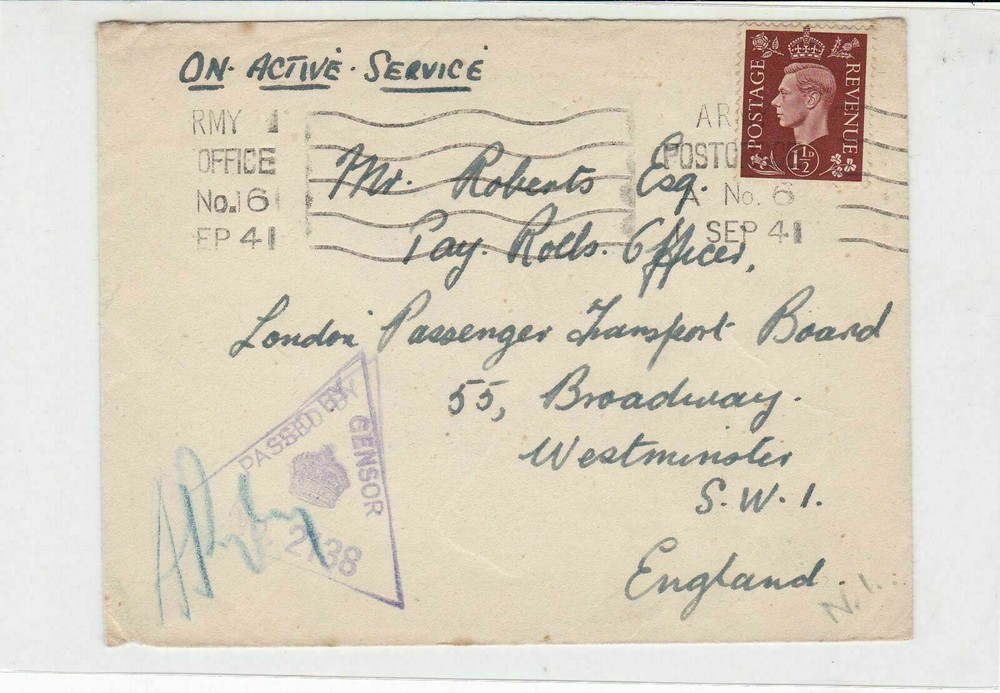 ON. ACTIVE. SERVICE
RMY
OFFICE
No.16
EP 41
AR
POST
A No. 6
SEP 41
POSTAGE
REVENUE
1½D
Mr. Roberts Esq.
Pay. Rolls. Officer,
London Passenger Transport Board
55, Broadway.
Westminster
S.W.1.
England.
PASSED BY
CENSOR
2138
N.I.